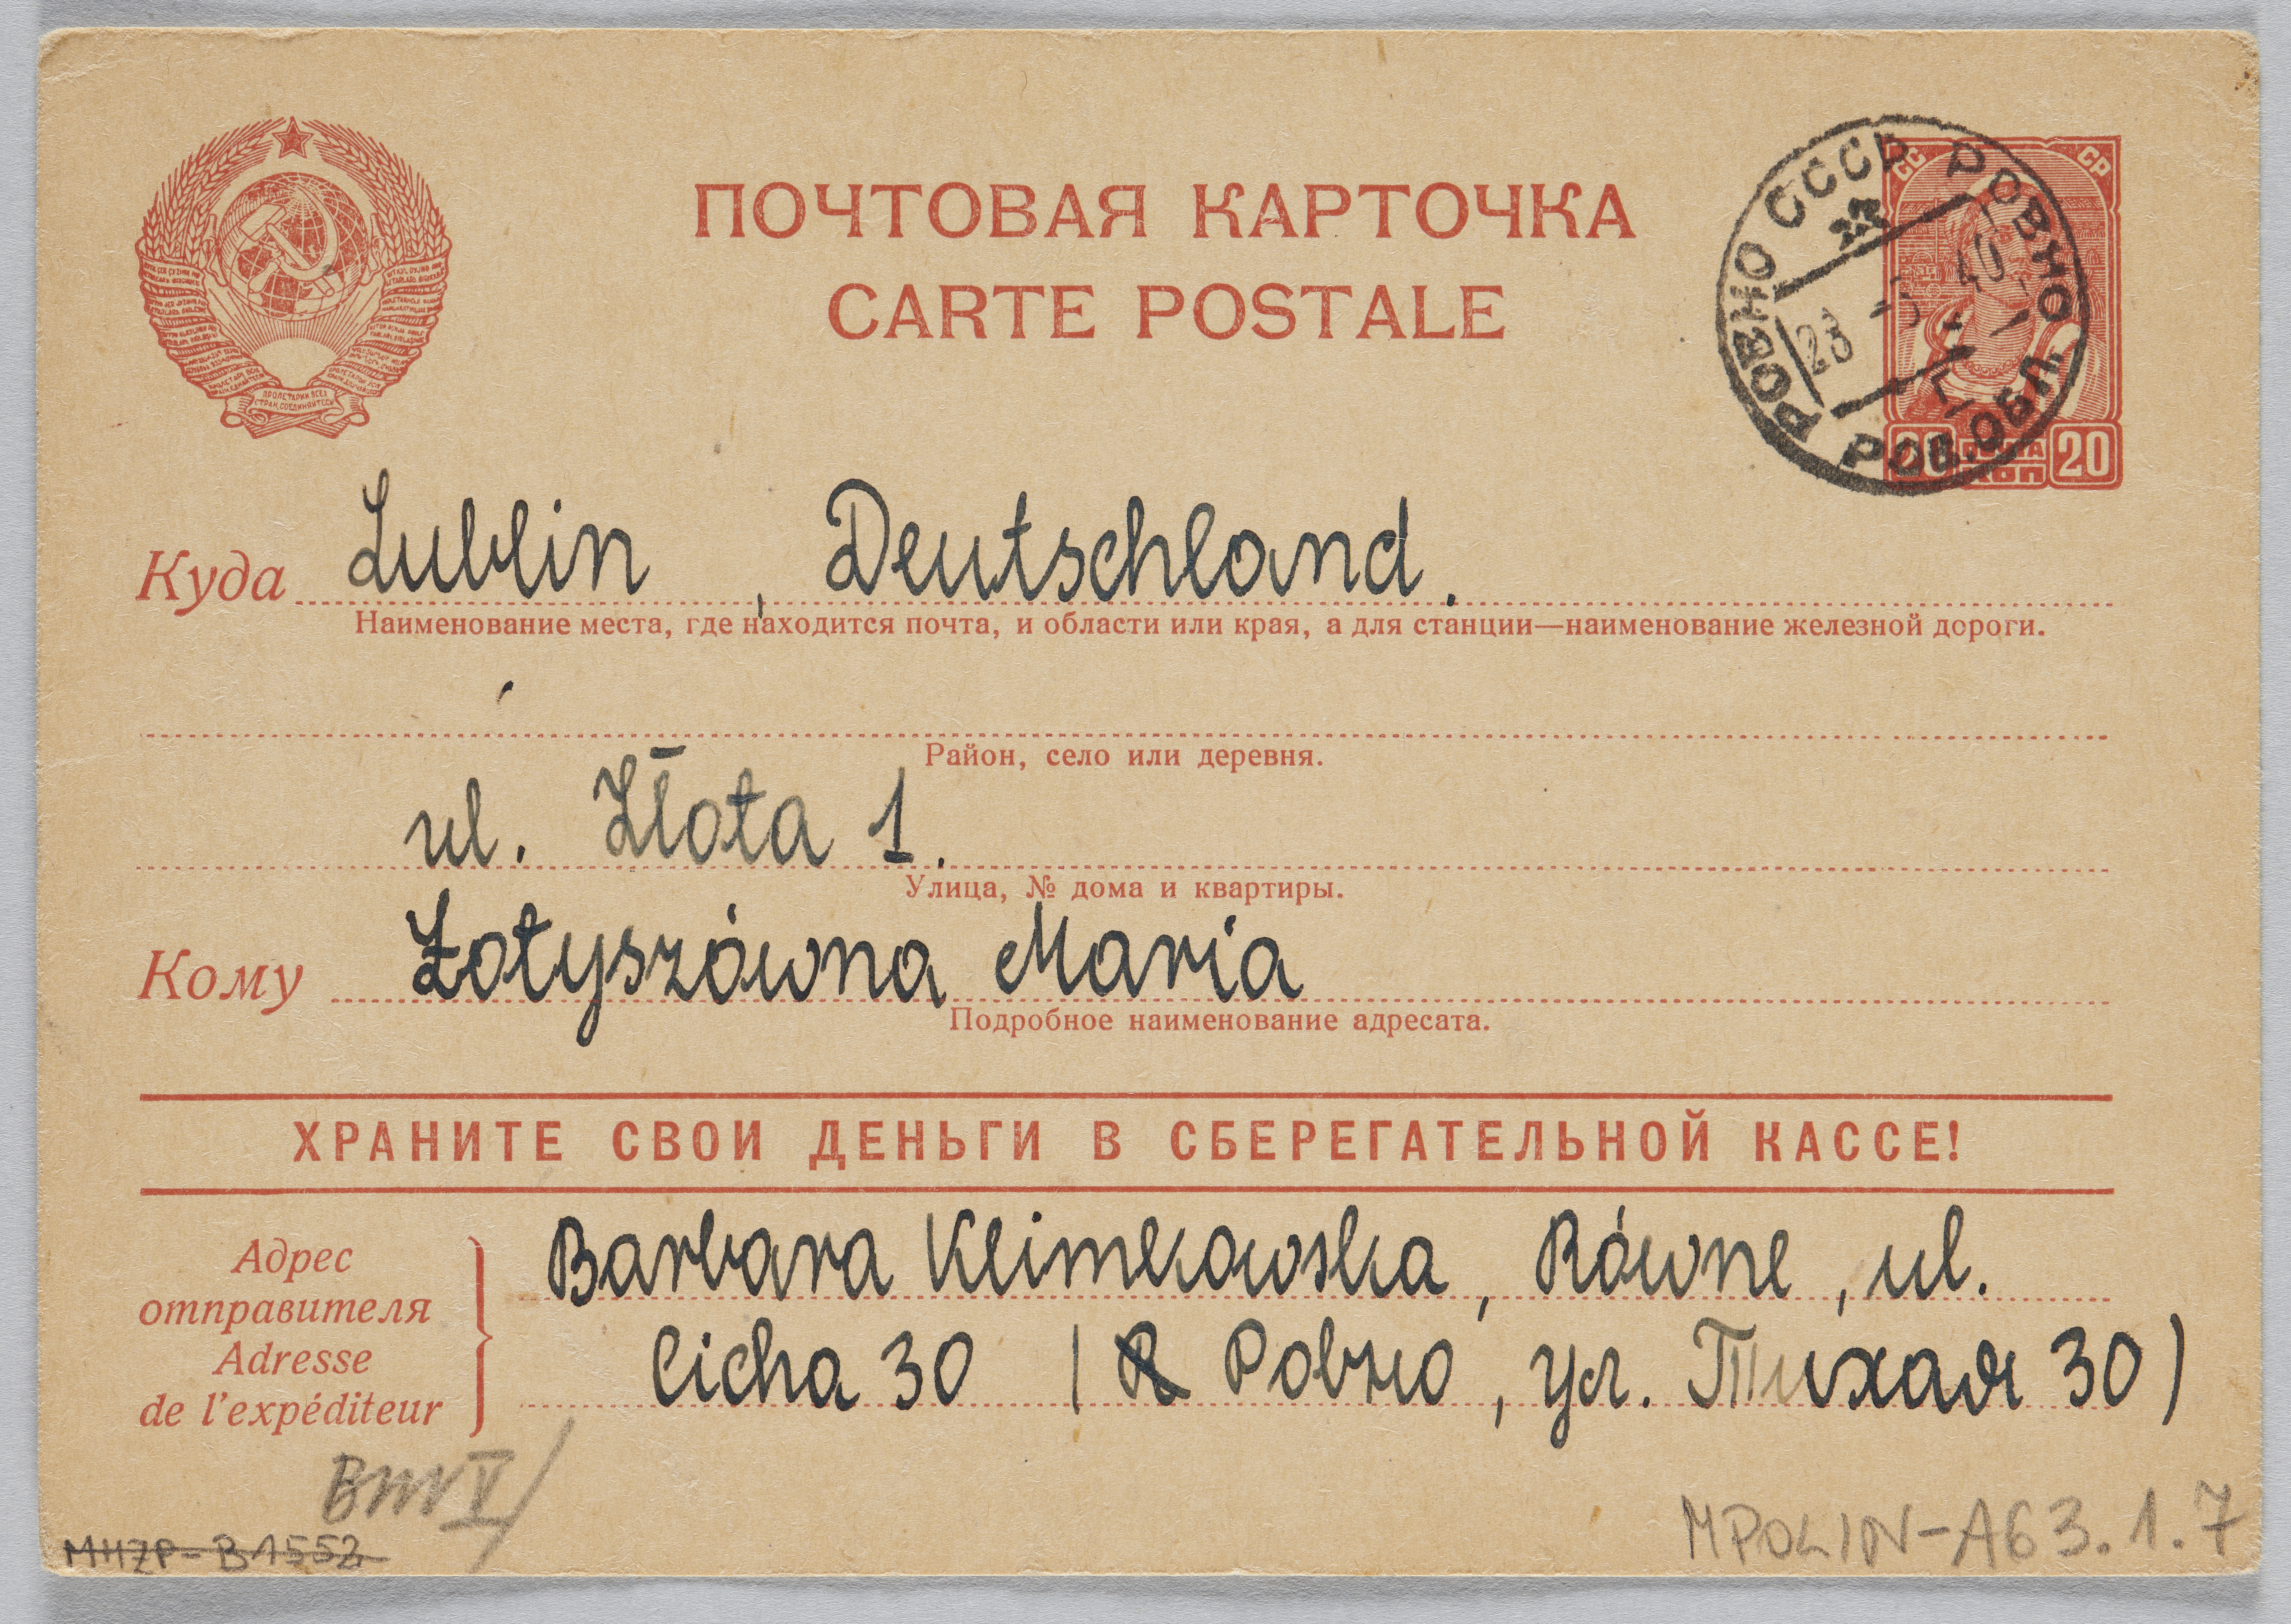 ПОЧТОВАЯ КАРТОЧКА
CARTE POSTALE
РОВНО СССР РОВНО
СС СР
40
РОВ. ОБЛ.
20 ПОЧТА 20
КОП
ПРОЛЕТАРИИ ВСЕХ
СТРАН, СОЕДИНЯЙТЕСЬ
Куда Lublin, Deutschland.
Наименование места, где находится почта, и области или края, а для станции—наименование железной дороги.
Район, село или деревня.
ul. Złota 1.
Улица, № дома и квартиры.
Кому Łotyszówna Maria
Подробное наименование адресата.
ХРАНИТЕ СВОИ ДЕНЬГИ В СБЕРЕГАТЕЛЬНОЙ КАССЕ!
Адрес
отправителя
Adresse
de l'expéditeur
Barbara Klimkowska, Równe, ul.
Cicha 30 ( Ровно, ул. Тихая 30)
MPOLIN-A63.1.7